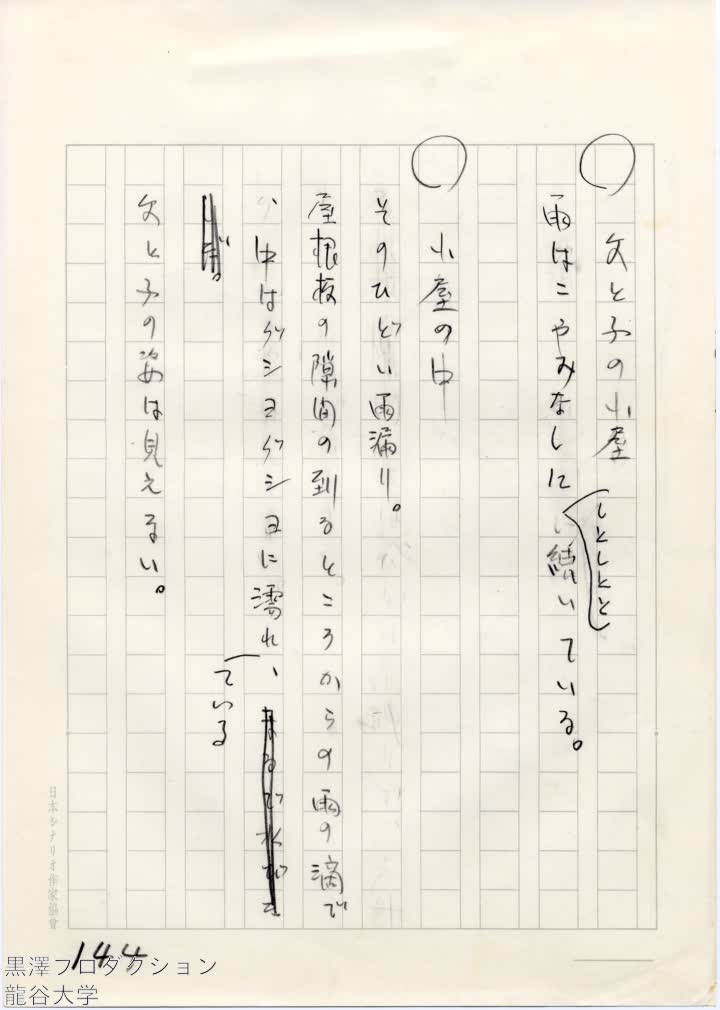 ○ 父と子の小屋
雨はこやみなしにしとしとと続いている。
○ 小屋の中
そのひどい雨漏り。
屋根板の隙間の到るところからの雨の滴で
、中はグショグショに濡れ、ている
父と子の姿は見えない。
日本シナリオ作家協會
144
黒澤プロダクション
龍谷大学